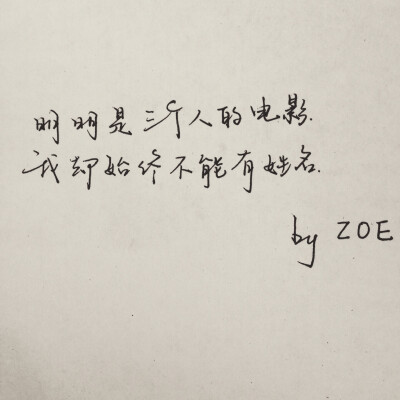 明明是三个人的电影.
我却始终不能有姓名.
by ZOE